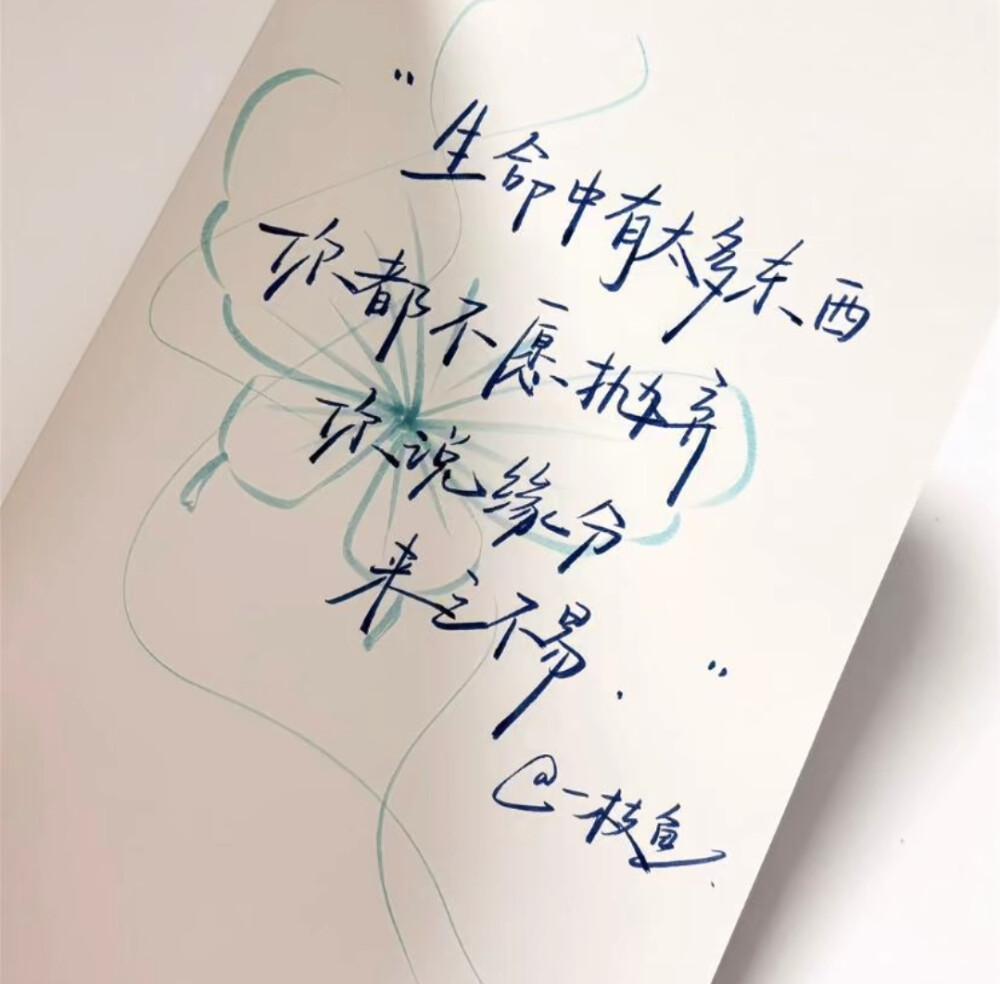 "生命中有太多东西
你都不愿抛弃
你说缘分
来之不易."
@一枝鱼